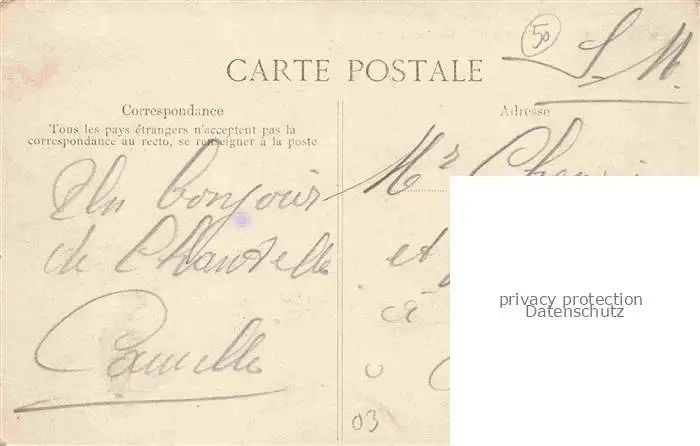 50
S. M.
CARTE POSTALE
Correspondance
Tous les pays étrangers n'acceptent pas la
correspondance au recto, se renseigner à la poste
Un bonjour
de Chantelle
Camille
Adresse
Mr
et
à
03
privacy protection
Datenschutz